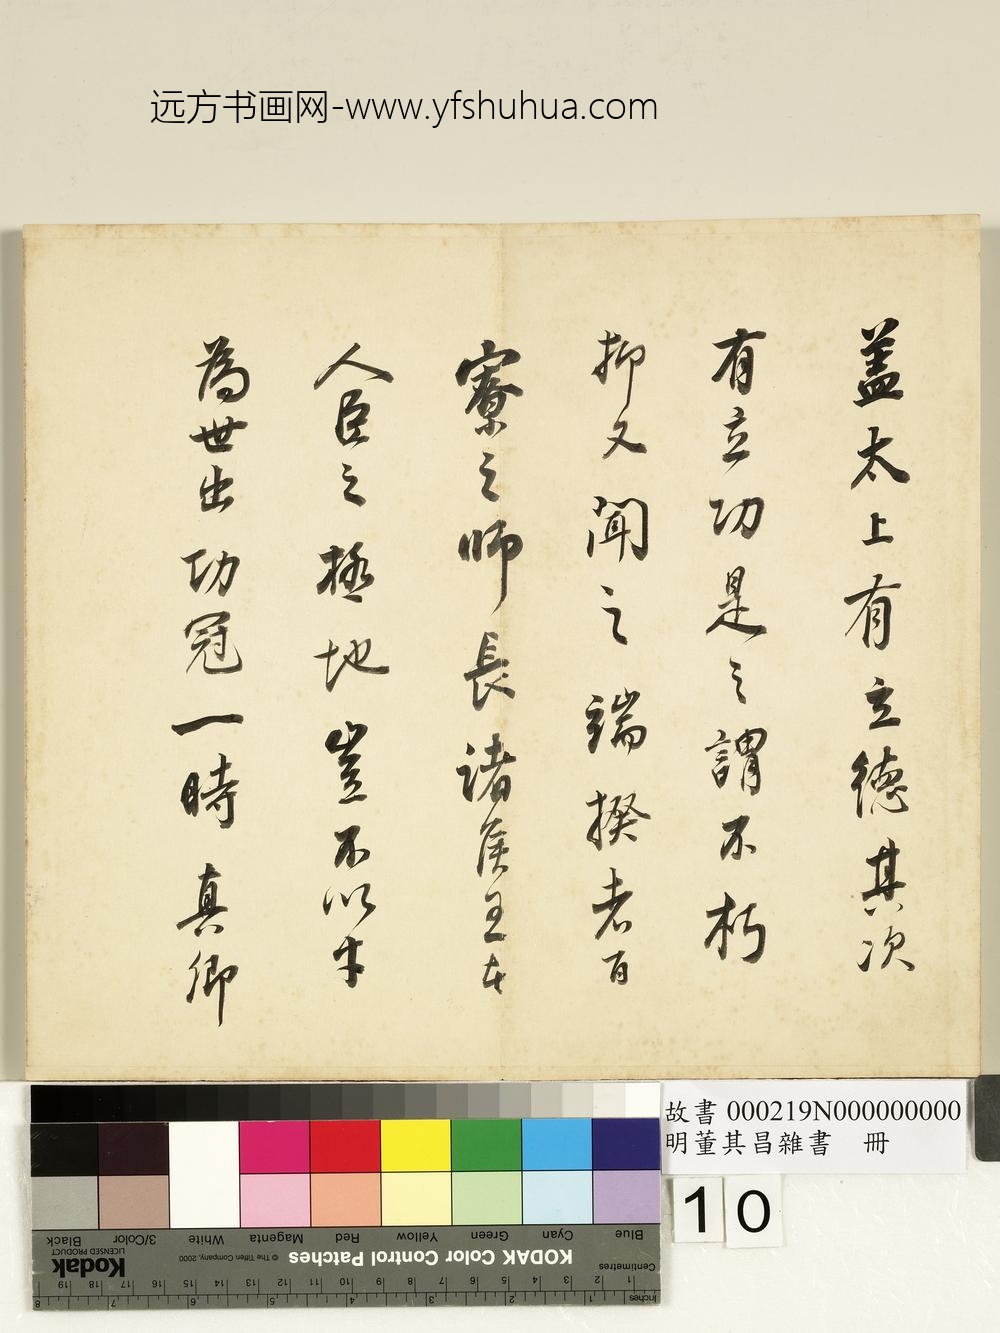 远方书画网-www.yfshuhua.com
盖太上有立德其次
有立功是之謂不朽
抑又聞之端揆者百
寮之師長諸侯王者
人臣之極地豈不以才
為世出功冠一時真卿
故書 000219N000000000
明董其昌雜書 冊
10
Blue Cyan Green Yellow Red Magenta White 3/Color Black
KODAK Color Control Patches © The Tiffen Company, 2000 Kodak
LICENSED PRODUCT
Centimetres 1 2 3 4 5 6 7 8 9 10 11 12 13 14 15 16 17 18 19
Inches 1 2 3 4 5 6 7 8